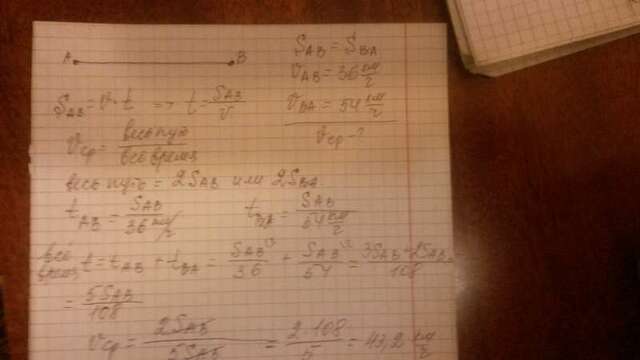 A B
S_AB = S_BA
V_AB = 36 км/ч
V_BA = 54 км/ч
V_ср - ?
S_AB = V · t => t = S_AB/V
V_ср = весь путь/всё время
весь путь = 2S_AB или 2S_BA
t_AB = S_AB/36 км/ч t_BA = S_AB/54 км/ч
всё время t = t_AB + t_BA = S_AB^(3/36 + S_AB^(2/54 = 3S_AB + 2S_AB/108 =
= 5S_AB/108
V_ср = 2S_AB/5S_AB = 2 · 108/5 = 43,2 км/ч